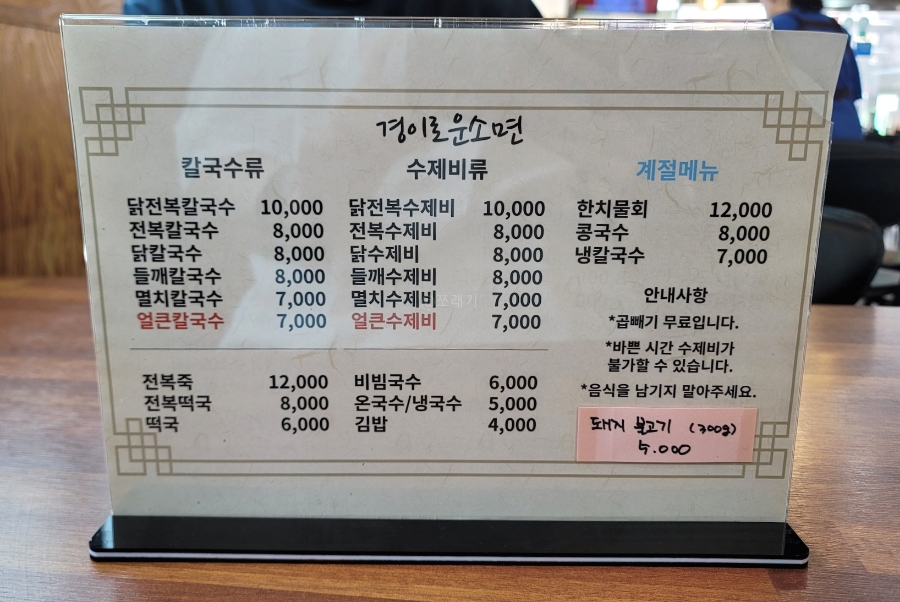 경이로운소면
칼국수류
닭전복칼국수 10,000
전복칼국수 8,000
닭칼국수 8,000
들깨칼국수 8,000
멸치칼국수 7,000
얼큰칼국수 7,000
수제비류
닭전복수제비 10,000
전복수제비 8,000
닭수제비 8,000
들깨수제비 8,000
멸치수제비 7,000
얼큰수제비 7,000
쪼래기
계절메뉴
한치물회 12,000
콩국수 8,000
냉칼국수 7,000
안내사항
*곱빼기 무료입니다.
*바쁜 시간 수제비가
불가할 수 있습니다.
*음식을 남기지 말아주세요.
전복죽 12,000
전복떡국 8,000
떡국 6,000
비빔국수 6,000
온국수/냉국수 5,000
김밥 4,000
돼지 불고기 (300g)
5.000